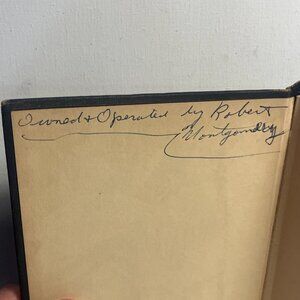 Owned & Operated by Robert
Montgomery